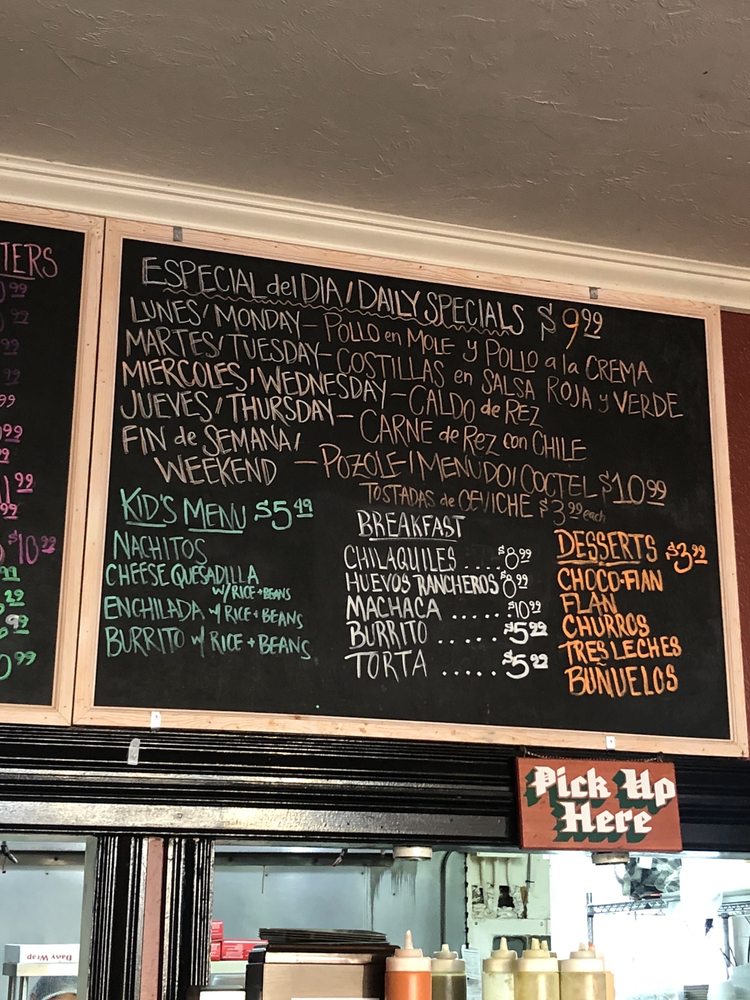 TERS
$10.99
ESPECIAL del DIA / DAILY SPECIALS $9.99
LUNES / MONDAY – POLLO en MOLE y POLLO a la CREMA
MARTES / TUESDAY – COSTILLAS en SALSA ROJA y VERDE
MIERCOLES / WEDNESDAY – CALDO de REZ
JUEVES / THURSDAY – CARNE de REZ con CHILE
FIN de SEMANA /
WEEKEND – POZOLE / MENUDO / COCTEL $10.99
TOSTADAS de CEVICHE $3.99 each
KID'S MENU $5.49
NACHITOS
CHEESE QUESADILLA
W/ RICE + BEANS
ENCHILADA w/ RICE + BEANS
BURRITO w/ RICE + BEANS
BREAKFAST
CHILAQUILES .... $8.99
HUEVOS RANCHEROS $8.99
MACHACA ..... $10.99
BURRITO ...... $5.99
TORTA ...... $5.99
DESSERTS $3.99
CHOCO-FLAN
FLAN
CHURROS
TRES LECHES
BUÑUELOS
Pick Up
Here
Daisy Wrap